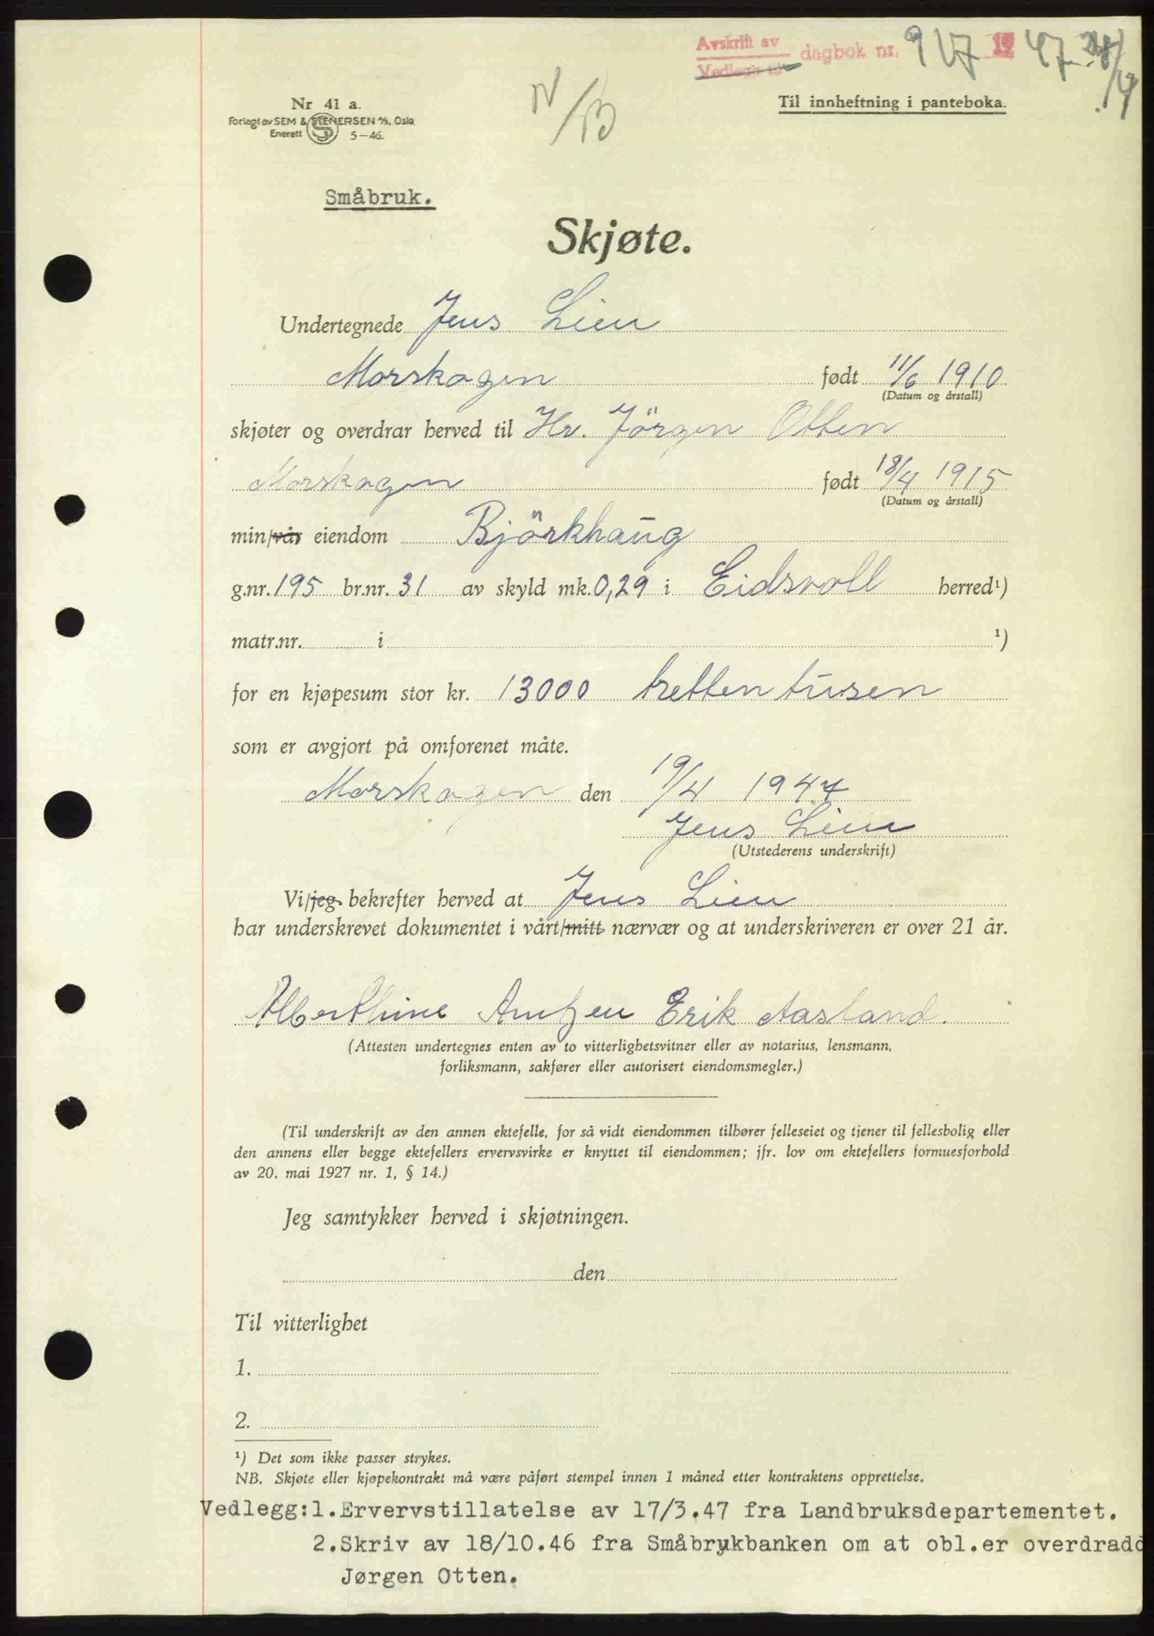 Avskrift av
Vedlegg til dagbok nr. 917 1947 28/4
N/B
Nr 41 a.
Forlagt av SEM & STENERSEN A/S, Oslo
Enerett S 5-46.
Til innheftning i panteboka.
Småbruk.
Skjøte.
Undertegnede Jens Lien
Morskogen født 11/6 1910
(Datum og årstall)
skjøter og overdrar herved til Hr. Jörgen Otten
Morskogen født 18/4 1915
(Datum og årstall)
min/vår eiendom Björkhaug
g.nr. 195 br.nr. 31 av skyld mk. 0,29 i Eidsvoll herred¹)
matr.nr. i ¹)
for en kjøpesum stor kr. 13000 tretten tusen
som er avgjort på omforenet måte.
Morskogen den 19/4 1947
Jens Lien
(Utstederens underskrift)
Vi/jeg bekrefter herved at Jens Lien
har underskrevet dokumentet i vårt/mitt nærvær og at underskriveren er over 21 år.
Alberthine Arntzen Erik Aasland.
(Attesten undertegnes enten av to vitterlighetsvitner eller av notarius, lensmann,
forliksmann, sakfører eller autorisert eiendomsmegler.)
(Til underskrift av den annen ektefelle, for så vidt eiendommen tilhører felleseiet og tjener til fellesbolig eller
den annens eller begge ektefellers ervervsvirke er knyttet til eiendommen; jfr. lov om ektefellers formuesforhold
av 20. mai 1927 nr. 1, § 14.)
Jeg samtykker herved i skjøtningen.
den
Til vitterlighet
1.
2.
¹) Det som ikke passer strykes.
NB. Skjøte eller kjøpekontrakt må være påført stempel innen 1 måned etter kontraktens opprettelse.
Vedlegg:1.Ervervstillatelse av 17/3.47 fra Landbruksdepartementet.
2.Skriv av 18/10.46 fra Småbrukbanken om at obl.er overdradd
Jørgen Otten.